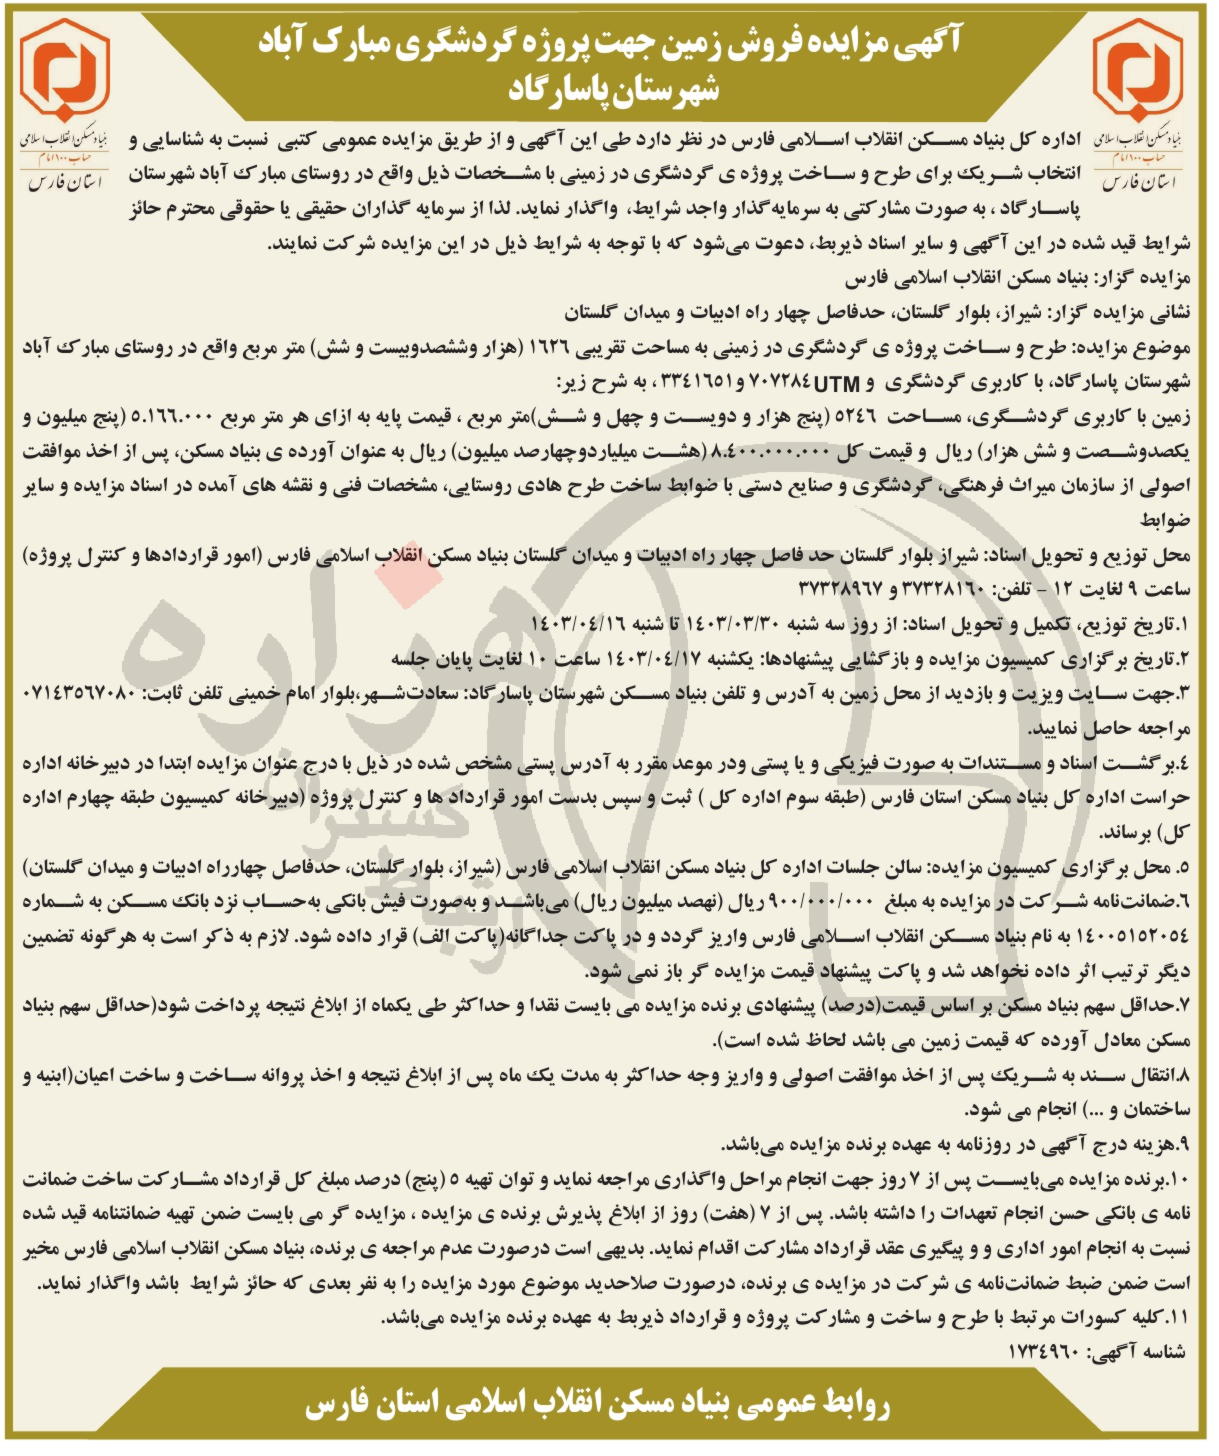 آگهی مزایده فروش زمین جهت پروژه گردشگری مبارک آباد
شهرستان پاسارگاد
بنیاد مسکن انقلاب اسلامی
حساب ۱۰۰ امام
استان فارس
بنیاد مسکن انقلاب اسلامی
حساب ۱۰۰ امام
استان فارس
اداره کل بنیاد مسکن انقلاب اسلامی فارس در نظر دارد طی این آگهی و از طریق مزایده عمومی کتبی نسبت به شناسایی و
انتخاب شریک برای طرح و ساخت پروژه ی گردشگری در زمینی با مشخصات ذیل واقع در روستای مبارک آباد شهرستان
پاسارگاد ، به صورت مشارکتی به سرمایه‌گذار واجد شرایط، واگذار نماید. لذا از سرمایه گذاران حقیقی یا حقوقی محترم حائز
شرایط قید شده در این آگهی و سایر اسناد ذیربط، دعوت می‌شود که با توجه به شرایط ذیل در این مزایده شرکت نمایند.
مزایده گزار: بنیاد مسکن انقلاب اسلامی فارس
نشانی مزایده گزار: شیراز، بلوار گلستان، حدفاصل چهار راه ادبیات و میدان گلستان
موضوع مزایده: طرح و ساخت پروژه ی گردشگری در زمینی به مساحت تقریبی ۱۶۲۶ (هزار وششصدوبیست و شش) متر مربع واقع در روستای مبارک آباد
شهرستان پاسارگاد، با کاربری گردشگری و UTM۷۰۷۲۸۴ و۳۳۴۱۶۵۱ ، به شرح زیر:
زمین با کاربری گردشگری، مساحت ۵۲۴۶ (پنج هزار و دویست و چهل و شش)متر مربع ، قیمت پایه به ازای هر متر مربع ۵.۱۶۶.۰۰۰ (پنج میلیون و
یکصدوشصت و شش هزار) ریال و قیمت کل ۸.۴۰۰.۰۰۰.۰۰۰ (هشت میلیاردوچهارصد میلیون) ریال به عنوان آورده ی بنیاد مسکن، پس از اخذ موافقت
اصولی از سازمان میراث فرهنگی، گردشگری و صنایع دستی با ضوابط ساخت طرح هادی روستایی، مشخصات فنی و نقشه های آمده در اسناد مزایده و سایر
ضوابط
محل توزیع و تحویل اسناد: شیراز بلوار گلستان حد فاصل چهار راه ادبیات و میدان گلستان بنیاد مسکن انقلاب اسلامی فارس (امور قراردادها و کنترل پروژه)
ساعت ۹ لغایت ۱۲ – تلفن: ۳۷۳۲۸۱۶۰ و ۳۷۳۲۸۹۶۷
۱.تاریخ توزیع، تکمیل و تحویل اسناد: از روز سه شنبه ۱۴۰۳/۰۳/۳۰ تا شنبه ۱۴۰۳/۰۴/۱۶
۲.تاریخ برگزاری کمیسیون مزایده و بازگشایی پیشنهادها: یکشنبه ۱۴۰۳/۰۴/۱۷ ساعت ۱۰ لغایت پایان جلسه
۳.جهت سایت ویزیت و بازدید از محل زمین به آدرس و تلفن بنیاد مسکن شهرستان پاسارگاد: سعادت‌شهر،بلوار امام خمینی تلفن ثابت: ۰۷۱۴۳۵۶۷۰۸۰
مراجعه حاصل نمایید.
۴.برگشت اسناد و مستندات به صورت فیزیکی و یا پستی ودر موعد مقرر به آدرس پستی مشخص شده در ذیل با درج عنوان مزایده ابتدا در دبیرخانه اداره
حراست اداره کل بنیاد مسکن استان فارس (طبقه سوم اداره کل ) ثبت و سپس بدست امور قرارداد ها و کنترل پروژه (دبیرخانه کمیسیون طبقه چهارم اداره
کل) برساند.
۵. محل برگزاری کمیسیون مزایده: سالن جلسات اداره کل بنیاد مسکن انقلاب اسلامی فارس (شیراز، بلوار گلستان، حدفاصل چهارراه ادبیات و میدان گلستان)
۶.ضمانت‌نامه شرکت در مزایده به مبلغ ۹۰۰/۰۰۰/۰۰۰ ریال (نهصد میلیون ریال) می‌باشد و به‌صورت فیش بانکی به‌حساب نزد بانک مسکن به شماره
۱۴۰۰۵۱۵۲۰۵۴ به نام بنیاد مسکن انقلاب اسلامی فارس واریز گردد و در پاکت جداگانه(پاکت الف) قرار داده شود. لازم به ذکر است به هرگونه تضمین
دیگر ترتیب اثر داده نخواهد شد و پاکت پیشنهاد قیمت مزایده گر باز نمی شود.
۷.حداقل سهم بنیاد مسکن بر اساس قیمت(درصد) پیشنهادی برنده مزایده می بایست نقدا و حداکثر طی یکماه از ابلاغ نتیجه پرداخت شود(حداقل سهم بنیاد
مسکن معادل آورده که قیمت زمین می باشد لحاظ شده است).
۸.انتقال سند به شریک پس از اخذ موافقت اصولی و واریز وجه حداکثر به مدت یک ماه پس از ابلاغ نتیجه و اخذ پروانه ساخت و ساخت اعیان(ابنیه و
ساختمان و ...) انجام می شود.
۹.هزینه درج آگهی در روزنامه به عهده برنده مزایده می‌باشد.
۱۰.برنده مزایده می‌بایست پس از ۷ روز جهت انجام مراحل واگذاری مراجعه نماید و توان تهیه ۵ (پنج) درصد مبلغ کل قرارداد مشارکت ساخت ضمانت
نامه ی بانکی حسن انجام تعهدات را داشته باشد. پس از ۷ (هفت) روز از ابلاغ پذیرش برنده ی مزایده ، مزایده گر می بایست ضمن تهیه ضمانتنامه قید شده
نسبت به انجام امور اداری و و پیگیری عقد قرارداد مشارکت اقدام نماید. بدیهی است درصورت عدم مراجعه ی برنده، بنیاد مسکن انقلاب اسلامی فارس مخیر
است ضمن ضبط ضمانت‌نامه ی شرکت در مزایده ی برنده، درصورت صلاحدید موضوع مورد مزایده را به نفر بعدی که حائز شرایط باشد واگذار نماید.
۱۱.کلیه کسورات مرتبط با طرح و ساخت و مشارکت پروژه و قرارداد ذیربط به عهده برنده مزایده می‌باشد.
شناسه آگهی: ۱۷۳۴۹۶۰
روابط عمومی بنیاد مسکن انقلاب اسلامی استان فارس
هزاره
گستران
ارتباط